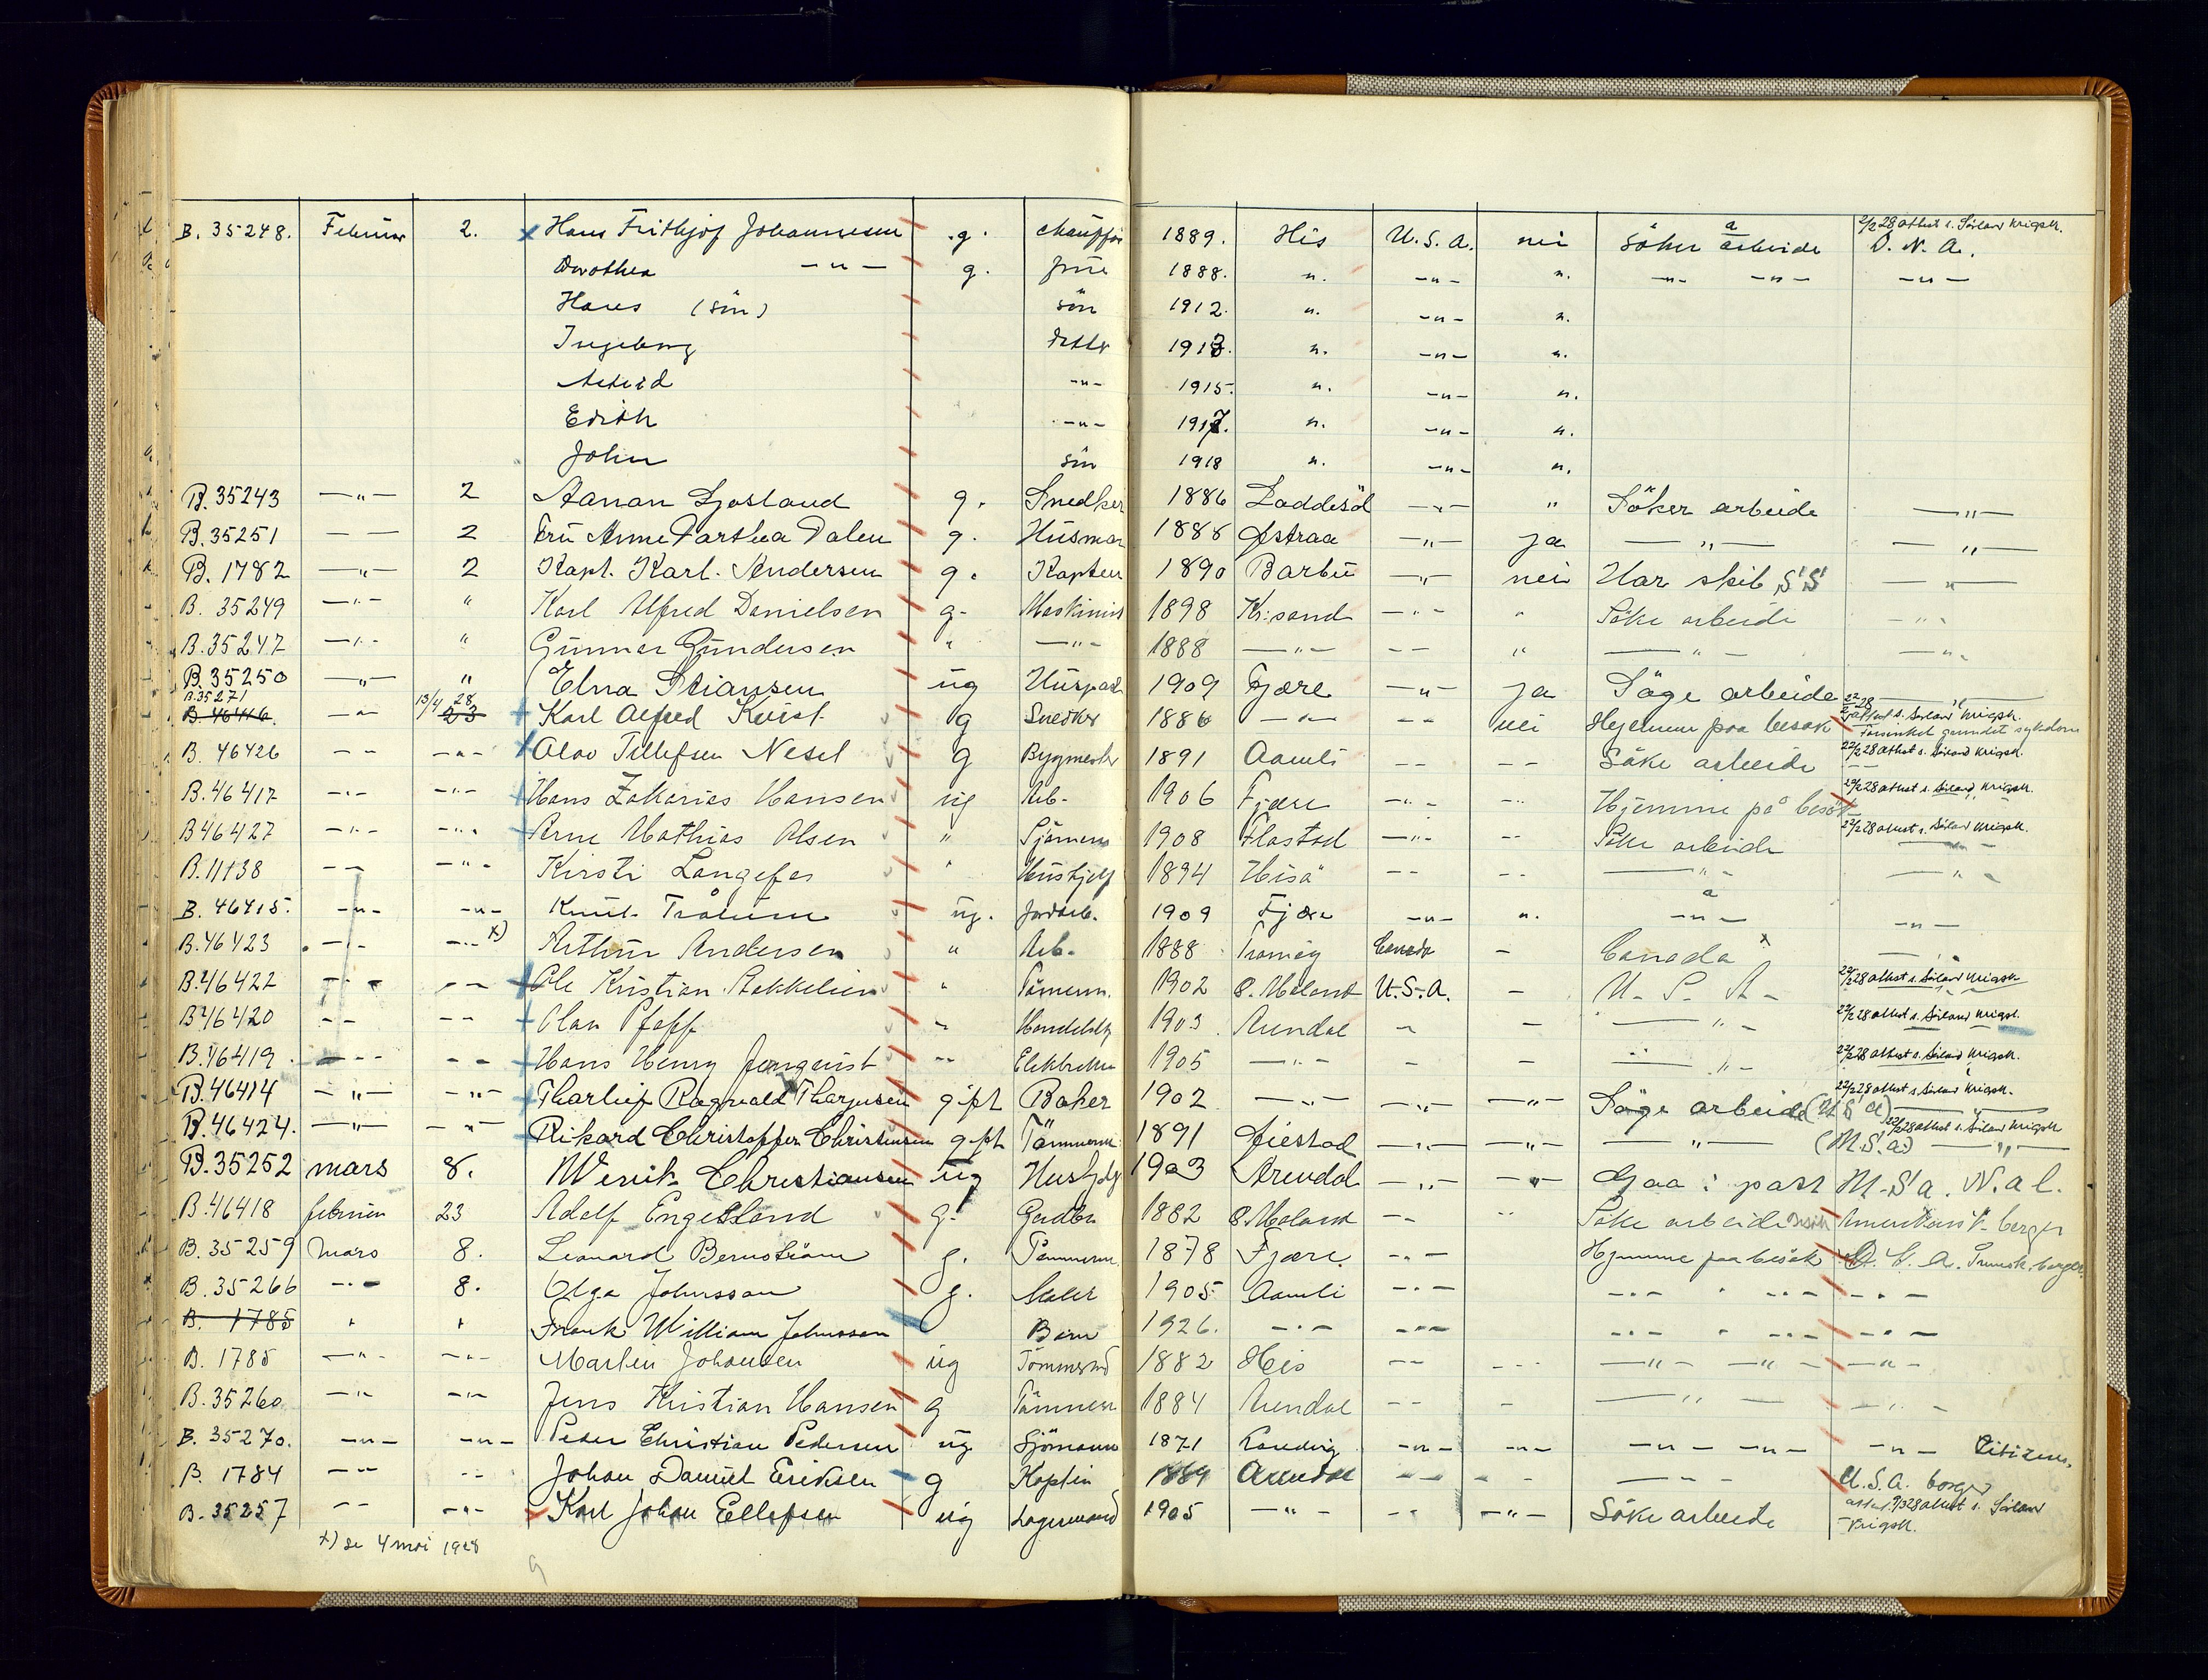 B. 35248. Februar 2. x Hans Frithjof Johannesen .g. chauffør 1889. His U.S.A. nei søker arbeide 2/2 28 attest s. Sörland Krigsk. D. N. A.
Dorothea —"— g. frue 1888. ". —"— ". —"— —"— —"—
Hans (søn) søn 1912. ". —"— ".
Ingeborg datter 1913. ". —"— ".
Astrid —"— 1915. ". —"— ".
Edith —"— 1917. ". —"— ".
John søn 1918 ". —"— ".
B. 35243 —"— 2 Aanan Ljosland g. Snedker 1886 Laddesöl —"— " Söker arbeide —"—
B. 35251 — — 2 Frü Anne Parthea Dalen g. Hüsmor 1888 Østraa —"— ja —"— —"—
B. 1782 —"— 2 Kapt. Karl. Andersen g. Kaptein 1890 Barbü —"— nei Har skib S'S' —"—
B. 35249 —"— " Karl Alfred Danielsen g. Maskinist 1898 Kr:sand —"— " Söke arbeide —"—
B. 35247 —"— " Günnar Gündersen " —"— 1888 —"— —— " —"— —"—
B. 35250 —"— " Elna Stiansen üg Hüspost 1909 Fjære —"— ja Söge arbeide —"—
B. 35271 B. 46416. —"— 13/4 28 23 Karl Alfred Kvist g Snedker 1886 —"— —— nei Hjemme paa besøk 22/2 28 attest s. Sörland Krigsk. Forsinket grundet sykdom
B. 46426 —— —"— Olav Tellefsen Nesel g Bygmester 1891 Aamli —— —— Søke arbeide 22/2 28 attest s. Sörland Krigsk.
B. 46417 —"— —"— Hans Zakarias Hansen üg Arb. 1906 Fjære —"— —"— Hjemme på besøk 22/2 28 attest s. Sörland Krigsk.
B 46427 —"— —"— Arne Mathias Olsen " Sjömann 1908 Flostad —"— —— Söke arbeide 22/2 28 attest s. Sörland Krigsk.
B. 11138 —— —"— Kirsti Langefos " Hüshjelp 1894 Hisö —— —— —"— —"—
B. 46415. —"— —"— Knut Tråüm üg. Jordarb. 1909 Fjære —"— ". —"— —"—
B. 46423 —"— —"— x) Arthür Andersen " Arb. 1888 Tromöy Canada — Canada x —"—
B. 46422 —"— —— Ole Kristian Bakkelien " Tömerm. 1902 Ø. Moland U.S.A. — U. S. A. 22/2 28 attest s. Sörland Krigsk
B 46420 —— —— Olav Pfaff " Handelsbtj 1903 Arendal — — —"— 22/2 28 attest s. Sörland Krigsk.
B. 46419 —— —— Hans Henry Jonqvist " Elektriker 1905 —"— — — —"— 22/2 28 attest s. Sörland Krigsk.
B. 46414 —"— —"— Tharlief Ragnvald Tharjusen gipt Baker 1902 —"— —"— —"— Söge arbeide (U S a) 22/2 28 attest s. Sörland Krigsk.
B. 46424. —"— —"— Rikard Christoffer Christensen gipt Tömmerm. 1891 Øiestad —"— —"— —"— (U.S.a) 22/2 28 attest s. Sörland Krigsk —"—
B. 35252 mars 8. Christiansen üg Hushjelp 1903 Arendal —"— —"— Gjaa i past U.S.a. N.a l.
B. 46418 februar 23 Adolf Engesland g. 1882 Ø. Moland —— —"— Söke arbeide Besøk Amerikansk borger
B. 35259 Mars 8. Leonard Bernström g. Tömmerm. 1878 Fjære. —"— Hjemme paa besøk U. S. A. borger.
B. 35266 —"— 8. Olga Johnsson g. 1905. Aamli —"— —"— " —"— —"—
B. 1785 " " Frank William Johnsson Barn 1926. —"— —"— —"— " —"— —"—
B. 1785 —"— —"— Martin Johansen üg Tömmermd 1882 His —— —"— —"— —"— —"—
B. 35260 —"— —"— Jens Kristian Hansen g Tömmerm 1884 Arendal —— — —"— — —"—
B. 35270. —"— —"— Peder Christian Pedersen üg Sjömann 1871 —"— —"— —"— —"— —"— Citizen.
B. 1784 —"— —— Johan Daniel Eriksen g Kaptein 1889 Arendal —— —— —"— U.S.A. borger
B. 35257 —— —"— Karl Johan Ellefsen üg Lagermand 1905 —"— —— —"— Söke arbeide attest 9/3 28 attest s. Sörland Krigsk.
x) se 4 mai 1928
9